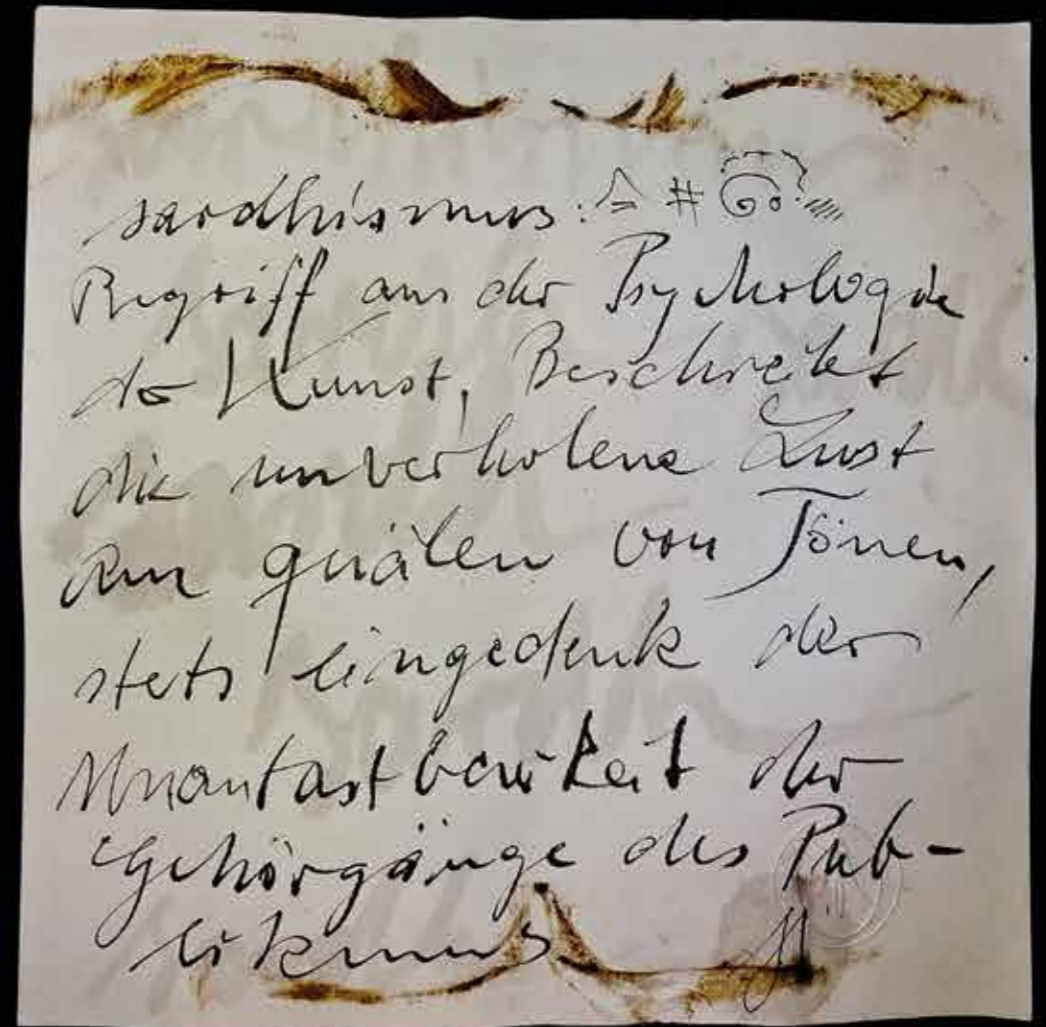 sardhismus: ≙ #
Begriff aus der Psychologie
der Kunst, Beschreibt
die unverholene Lust
am quälen von Tönen,
stets eingedenk der
Unantastbarkeit der
Gehörgänge des Pub-
likums